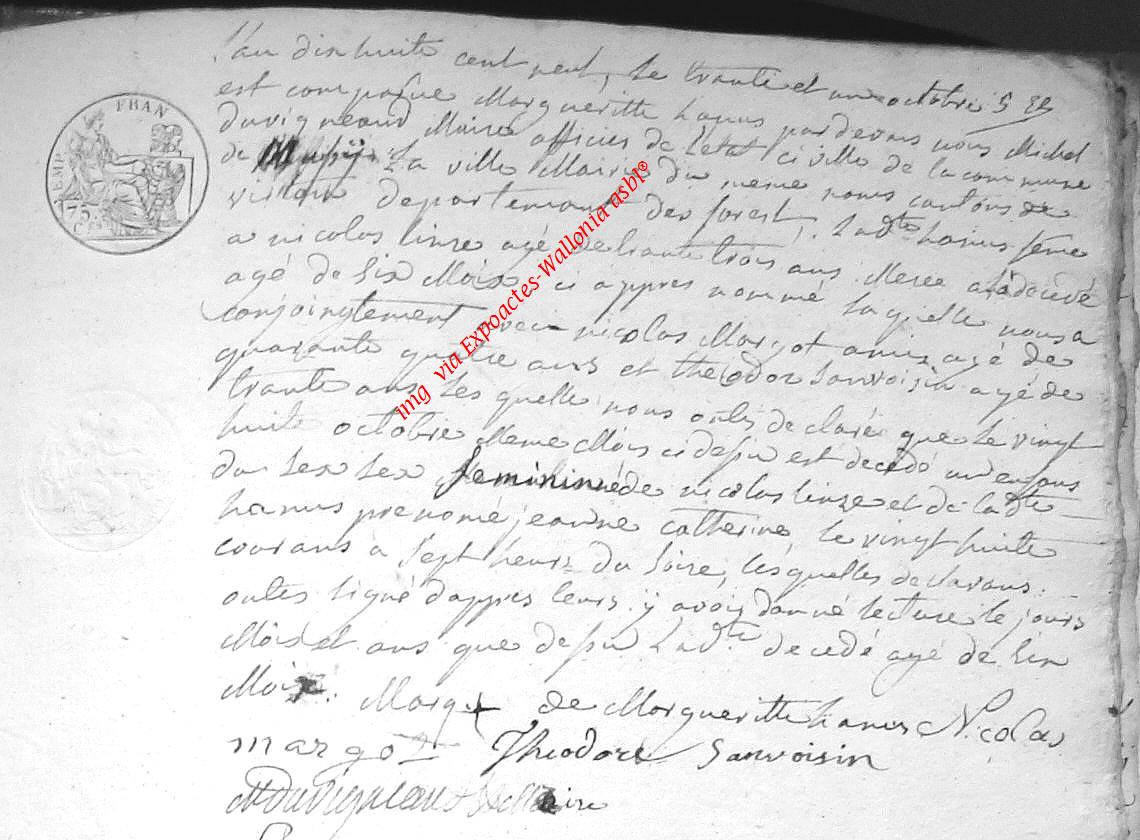 l'an dix huite cent neuf, le trante et un octobre 5
est comparue Margueritte hanus pardevant nous Michel
duvigneaud Maire officier de l'etat ci ville de la commune
de Mussÿ La ville Mairie du meme noms cantons de
virton departement des forest, Ladte hanus feme
a nicolas linze agé de trante trois ans Mere a la décédé
agé de Six Mois ci appres nommé laquelle nous a
conjoingtement avec nicolas Margot amis agé de
quarante quatre ans et théodor Sanvoisin agé de
trante ans les quelle nous ontes declaré que le vingt
huite octobre Meme Mois ci desu est decedé un enfans
du Sex Sex feminin né de nicolas linze et de ladte
hanus prénomé jeanne catherine le vingt huite
courans a Sept heure du Soire, lesquelles declarans
ontes signé dappres leurs y avoir donné lecture le jours
Mois et ans que desu Ladte decedé agé de Six
Mois. Marque + de Margueritte hanus Nicolas
margot Théodore Sanvoisin
M Duvigneaud Maire
FRAN
TEMP
75
C.es
img via Expoactes-Wallonia asbl©